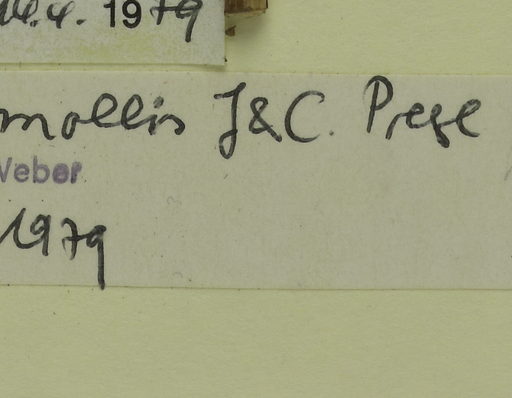 4. 1979
mollis J&C. Presl
Weber
1979